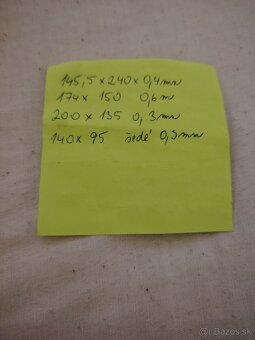 145,5 x 240 x 0,4 mm
174 x 150 0,6 m
200 x 135 0,3 mm
140 x 95 šedé 0,3 mm
© Bazos.sk